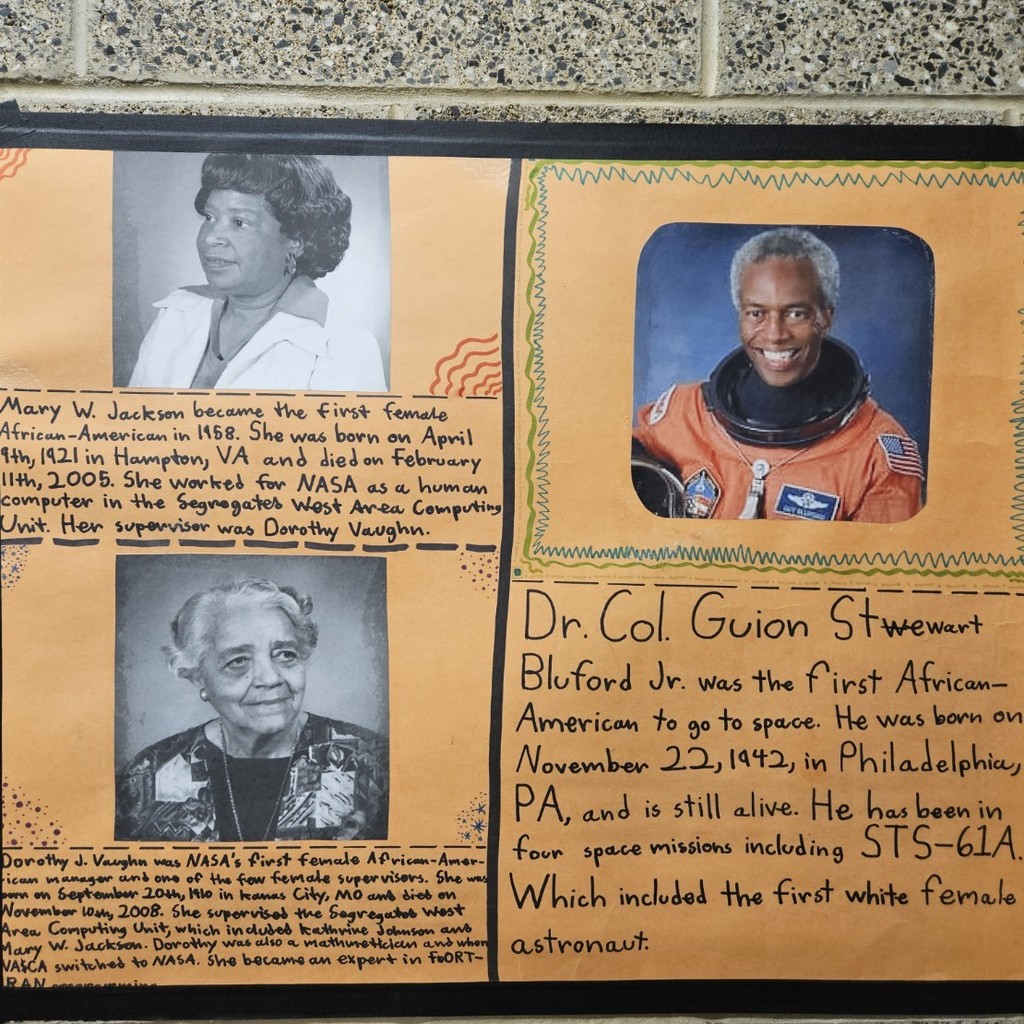 Mary W. Jackson became the first female
African-American in 1958. She was born on April
9th, 1921 in Hampton, VA and died on February
11th, 2005. She worked for NASA as a human
computer in the Segregates West Area Computing
Unit. Her supervisor was Dorothy Vaughn.
Dorothy J. Vaughn was NASA's first female African-Amer-
ican manager and one of the few female supervisors. She was
born on September 20th, 1910 in Kanas City, MO and died on
November 10th, 2008. She supervised the Segregates West
Area Computing Unit, which included Kathrine Johnson and
Mary W. Jackson. Dorothy was also a and when
switched to NASA. She became an expert in FoORT-
RAN
Dr. Col. Guion Stewart
Bluford Jr. was the first African-
American to go to space. He was born on
November 22, 1942, in Philadelphia,
PA, and is still alive. He has been in
four space missions including STS-61A.
Which included the first white female
astronaut.
GUY BLUFORD